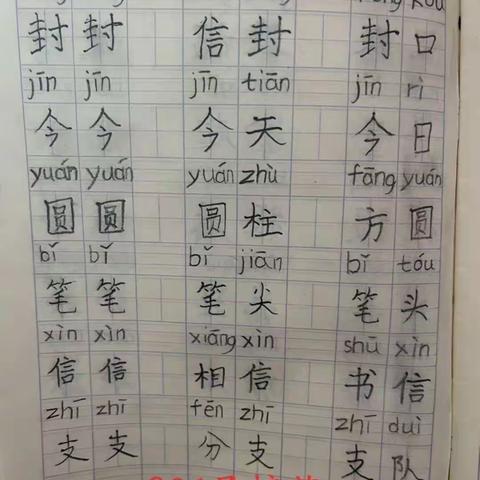 封 封 信 封 封 口
jīn jīn jīn tiān jīn rì
今 今 今 天 今 日
yuán yuán yuán zhù fāng yuán
圆 圆 圆 柱 方 圆
bǐ bǐ bǐ jiān bǐ tóu
笔 笔 笔 尖 笔 头
xìn xìn xiāng xìn shū xìn
信 信 相 信 书 信
zhī zhī fēn zhī zhī duì
支 支 分 支 支 队